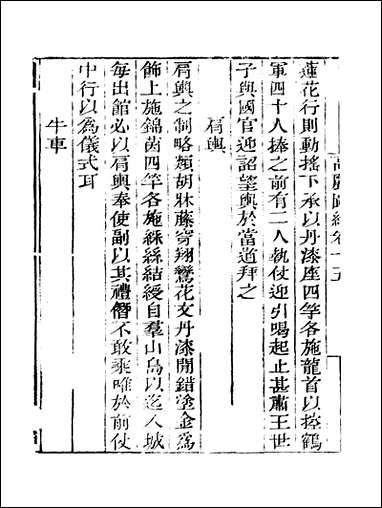 高麗圖經卷十五
蓮花行則動搖下承以丹漆座四竿各施龍首以控鶴
軍四十人捧之前有二人執仗迎引喝起止甚肅王世
子與國官迎詔望輿於當道拜之
肩輿
肩輿之制略類胡牀藤穿翔鸞花文丹漆間錯塗金爲
飾上施錦茵四竿各施絲絲結綬自羣山島以迄入城
每出館必以肩輿奉使副以其禮僭不敢乘唯於前仗
中行以爲儀式耳
牛車